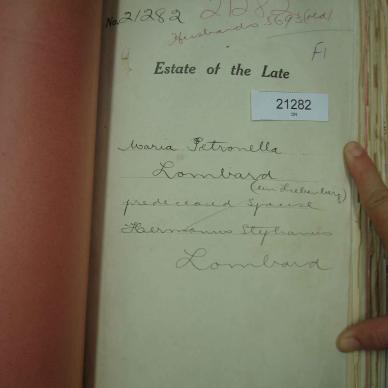 No. 21282 21282
Husbands 5693 (red)
F1
Estate of the Late
21282
Maria Petronella
Lombard
(born Liebenberg)
predeceased Spouse
Hermanus Stephanus
Lombard